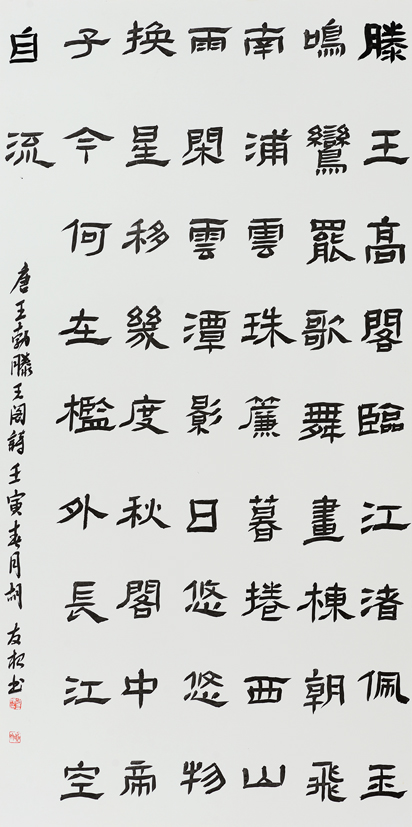 滕王高閣臨江渚佩玉
鳴鸞罷歌舞畫棟朝飛
南浦雲珠簾暮捲西山
雨閑雲潭影日悠悠物
換星移幾度秋閣中帝
子今何在檻外長江空
自流
唐王勃滕王阁詩壬寅春月胡友松书